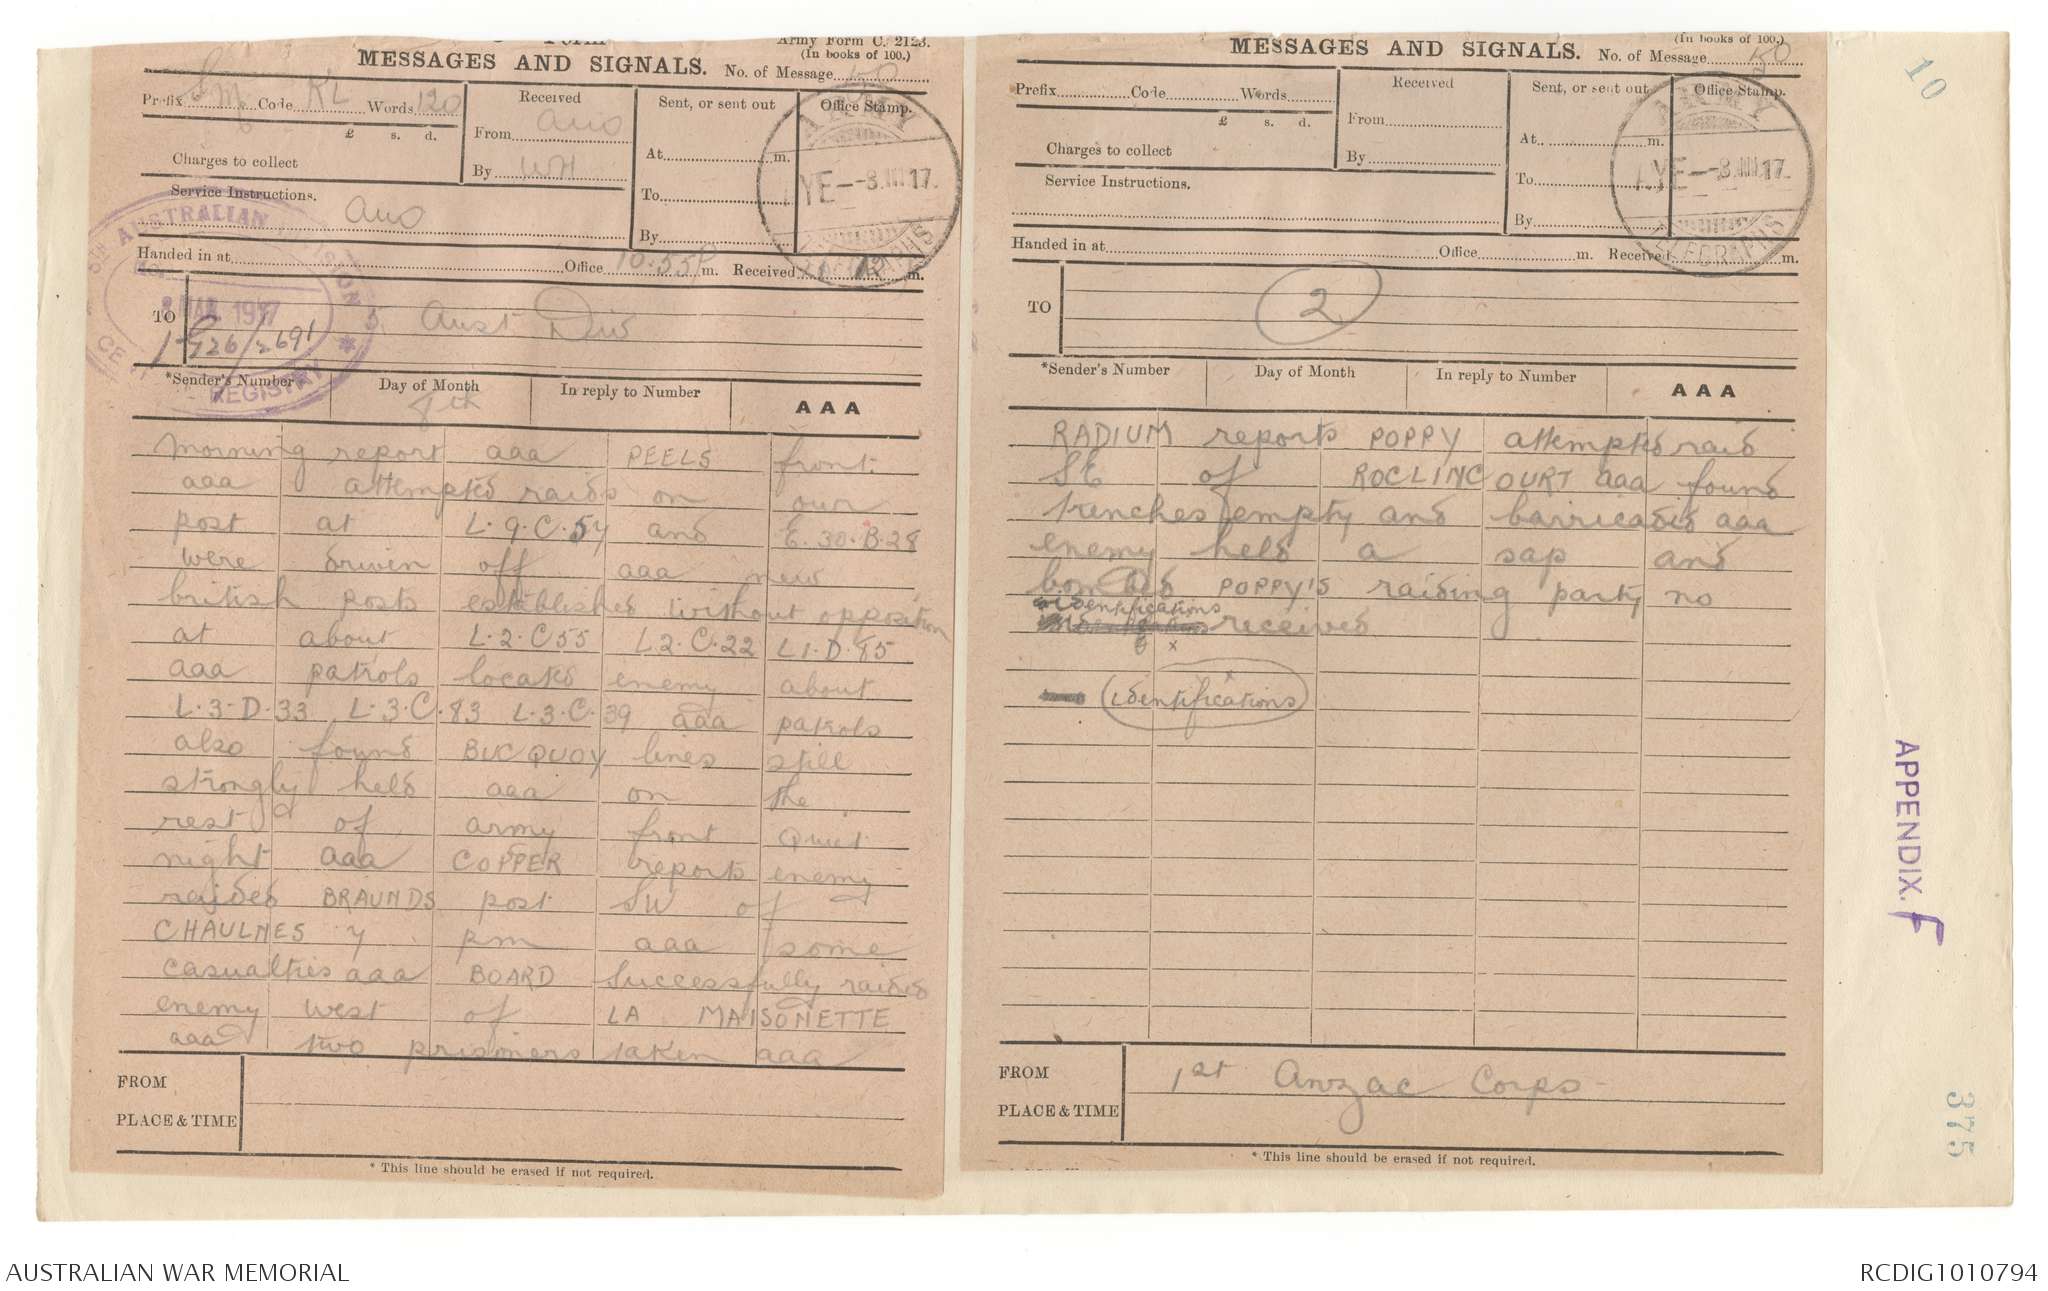 Army Form C. 2123.
(In books of 100.)
MESSAGES AND SIGNALS. No. of Message 50
Prefix Sm Code KL Words 120
£ s. d.
Charges to collect
Received
From
By
Sent, or sent out
At m.
To
By
Office Stamp.
ARMY
YE -8.III.17.
TELEGRAPHS
Service Instructions.
Handed in at Office 10.55 P m. Received m.
5TH AUSTRALIAN DIVISION
8 MAR 1917
REGISTRY
TO
Aust Div
*Sender's Number
Day of Month
8th
In reply to Number
AAA
Morning report aaa PEELS front
aaa attempted raids on our
post at L.9.C.54 and E.30.B.28
were driven off aaa new
british posts established without opposition
at about L.2.C55 L2.C.22 L1.D.85
aaa patrols located enemy about
L.3-D.33 L.3.C.83 L.3.C.39 aaa patrols
also found BUCQUOY lines still
strongly held aaa on the
rest of army front quiet
night aaa COPPER reports enemy
raided BRAUNDS post SW of
CHAULNES 7 pm aaa some
casualties aaa BOARD successfully raided
enemy west of LA MAISONETTE
aaa two prisoners taken aaa
FROM
PLACE & TIME
* This line should be erased if not required.
(In books of 100.)
MESSAGES AND SIGNALS. No. of Message 50
Prefix Code Words
£ s. d.
Charges to collect
Received
From
By
Sent, or sent out
At m.
To
By
Office Stamp.
ARMY
YE -8.III.17.
TELEGRAPHS
Service Instructions.
Handed in at Office m. Received m.
TO
2
*Sender's Number
Day of Month
In reply to Number
AAA
RADIUM reports POPPY attempted raid
SE of ROCLINCOURT aaa found
trenches empty and barricaded aaa
enemy held a sap and
bombed POPPY'S raiding party no
identifications
received
x
x
identifications
FROM
1st Anzac Corps
PLACE & TIME
* This line should be erased if not required.
10
APPENDIX. F
375
AUSTRALIAN WAR MEMORIAL
RCDIG1010794